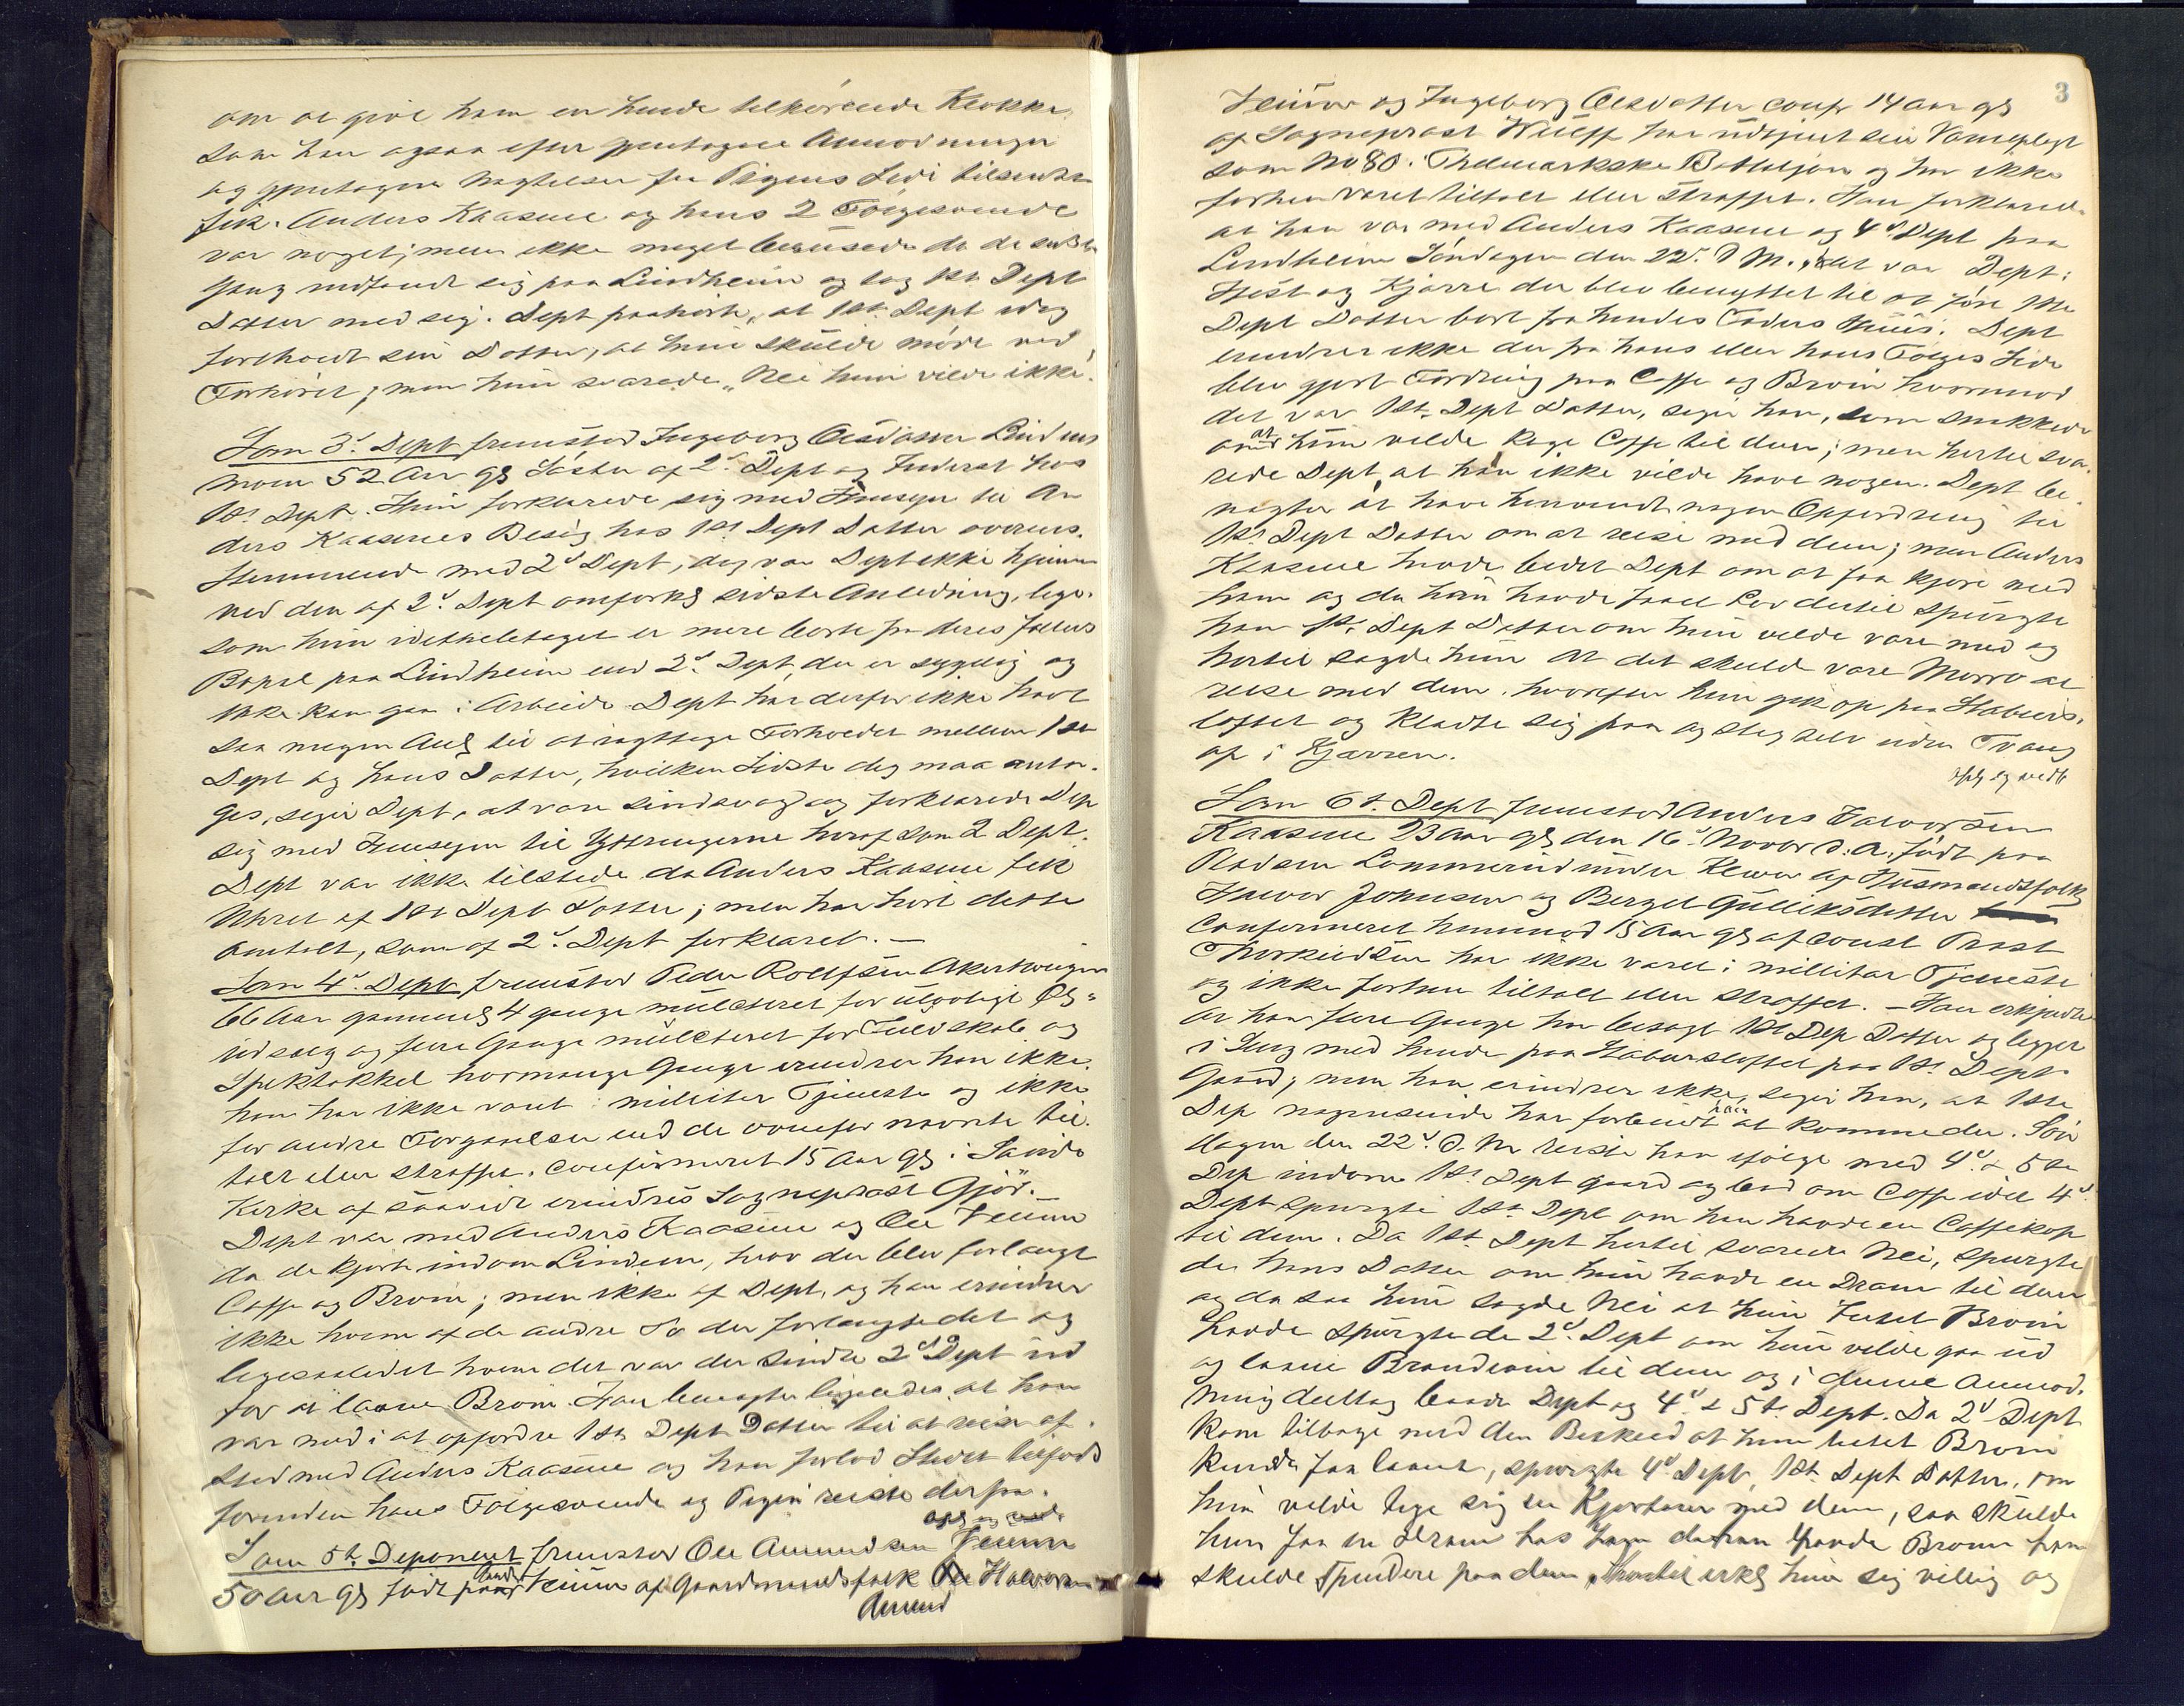 om at give ham en hende tilhørende Klokke,
som han ogsaa efter gjentagne Anmodninger
og gjentagne Nægtelser fra Pigens Side tilsidst
fik. Anders Kaasene og hans 2 Følgesvende
var noget; men ikke meget berusede da de sidste
Gang indfandt sig paa Lindheim og tog 1ste Dept
Datter med sig. Dept paahørte, at 1st. Dept idag
foreholdt sin Datter, at hun skulde møde ved
Forhøret; men hun svarede „Nei hun vilde ikke.“
Som 3d. Dept fremstod Ingeborg Olsdatter Lind
moen 52 Aar gl Søster af 2d. Dept og Inderst hos
1st. Dept. Hun forklarede sig med Hensyn til An
ders Kaasenes Besøg hos 1st Dept Datter overens-
stemmende med 2d Dept, dog var Dept ikke hjemme
ved den af 2d. Dept omforkl sidste Anledning, lige-
som hun idetheletaget er mere borte fra deres fælles
Bopæl paa Lindheim end 2d. Dept, der er sygelig og
ikke kan gaa i Arbeide. Dept har derfor ikke havt
saa megen Anl til at iagttage Forholdet mellem 1ste
Dept og hans Datter, hvilken Sidste dog maa anta-
ges, siger Dept, at være sindsvag og forklarede Dep
sig med Hensyn til Yttringerne heraf som 2 Dept.
Dept var ikke tilstede da Anders Kaasene fik
Uhret af 1st Dept Datter; men har hørt dette
omtalt, som af 2d. Dept forklaret. —
Som 4d. Dept fremstod Peder Rolefsen Akerhaugen
66 Aar gammel 4 gange mulcteret for ulovligt Øl-
udsalg og flere Gange mulcteret for Fuldskab og
Spektakkel hvormange Gange erindrer han ikke.
han har ikke været i militær Tjeneste og ikke
for andre Forgaaelser end de ovenfor nævnte til-
talt eller straffet. Confirmeret 15 Aar gl i Saude
Kirke af saavidt erindres Sogneprest Gjør. —
Dept var med Anders Kaasene og Ole Teinen
da de kjørte indom Lindem, hvor der blev forlangt
Caffe og Brevin; men ikke af Dept, og han erindrer
ikke hvem af de andre To der forlangte det og
ligesaaledes hvem det var der sendte 2d Dept ud
for at laane Brevin. Han benægter ligeledes at han
var med i at opfordre 1ste Dept Datter til at reise af-
sted med Anders Kaasene og han forlod Stedet tilfods
forinden hans Følgesvende og Pigen reiste derfra.
opl og vedt
Som 5te. Deponent fremstod Ole Amundsen Teinen
50 Aar gl født paa Teinen af Gaardmandsfolk Ole Halvorsen
Amund
3
Teinen og Ingeborg Olsdatter conf 14 aar gl
af Sogneprest Wulff har udtjent sin Værnepligt
som No 80. Thelemarkske Battaljon og har ikke
forhen været tiltalt eller straffet. Han forklarede
at han var med Anders Kaasene og 4d Dept paa
Lindheim Søndagen den 22d. D.M., det var Dept:
Hest og Kjærre der blev benyttet til at føre 1ste
Dept Datter bort fra hendes Faders Huus. Dept
erindrer ikke der fra hans eller hans Følges Side
blev gjort Fordring paa Caffe og Brevin hvorimod
det var 1st. Dept Datter, siger han, som snakkede
om at hun vilde koge Caffe til dem; men hertil sva-
rede Dept, at han ikke vilde have nogen. Dept be-
nægter at have henvendt nogen Opfordring til
1st. Dept Datter om at reise med dem; men Anders
Kaasene havde bedet Dept om at faa kjøre med
ham og da han havde faaet Lov dertil spurgte
han 1st. Dept Datter om hun vilde være med og
hertil sagde hun at det skulde være Morro at
reise med dem, hvorefter hun gik op paa Staburs-
loftet og klædte sig paa og steg selv uden Tvang
op i Kjærren.
opl og vedt
Som 6t. Dept fremstod Anders Halvorsen
Kaasene 23 Aar gl den 16d. Novbr d. A. født paa
Pladsen Lommerud under Klever af Husmandsfolk
Halvor Johnsen og Berget Gulleiksdatter
Confirmeret henimod 15 Aar gl af const Prest
Thorkildsen har ikke været i militær Tjeneste
og ikke forhen tiltalt eller straffet. — Han erkjendte
at han flere Gange har besøgt 1st. Dep Datter og ligget
i Seng med hende paa Stabursloftet paa 1st. Dept
Gaard; men han erindrer ikke, siger han, at 1ste
Dep nogensinde har forbudt ham at komme der. Søn
dagen den 22d. D. M reiste han ifølge med 4d. & 5te
Dep indom 1st. Dept gaard og bad om Caffe idet 4d.
Dept spurgte 1st. Dept om han havde en Caffekop
til dem. Da 1st. Dept hertil svarede Nei, spurgte
de hans Datter om hun havde en Dram til dem
og da saa hun sagde Nei at hun Intet Brevin
havde spurgte de 2d. Dept om hun vilde gaa ud
og laane Brændevin til dem og i denne Anmod-
ning deltog baade Dept og 4d. & 5te. Dept. Da 2d Dept
kom tilbage med den Besked at hun intet Brevin
kunde faa laant, spurgte 4d. Dept, 1st. Dept Datter, om
hun vilde tage sig en Kjøretur med dem, saa skulde
hun faa en Dram hos ham da han havde Brevin han
skulde spendere paa dem. Hertil erkl hun sig villig og